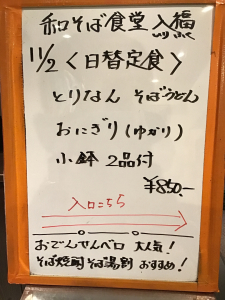 和そば食堂 入福
いりふく
11/2 <日替定食>
とりなん そばうどん
おにぎり(ゆかり)
小鉢 2品付
¥850-
入口こちら
おでんせんべロ 大人気!
そば焼酎 そば湯割 おすすめ!